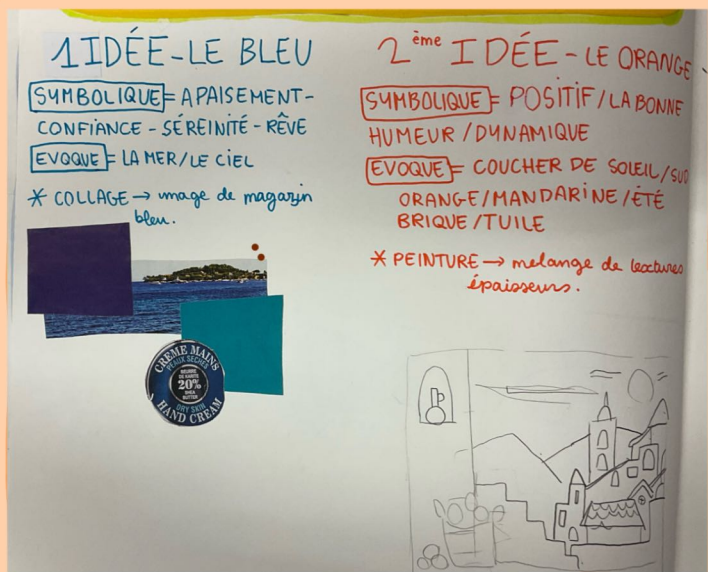 1 IDÉE - LE BLEU
SYMBOLIQUE = APAISEMENT -
CONFIANCE - SÉREINITÉ - RÊVE
EVOQUE = LA MER / LE CIEL
* COLLAGE → image de magazin
bleu.
CREME MAINS
PEAUX SECHES
BEURRE
DE KARITÉ
20%
SHEA
BUTTER
DRY SKIN
HAND CREAM
2ème IDÉE - LE ORANGE
SYMBOLIQUE = POSITIF / LA BONNE
HUMEUR / DYNAMIQUE
EVOQUE = COUCHER DE SOLEIL / SUD
ORANGE / MANDARINE / ÉTÉ
BRIQUE / TUILE
* PEINTURE → melange de textures
épaisseurs.